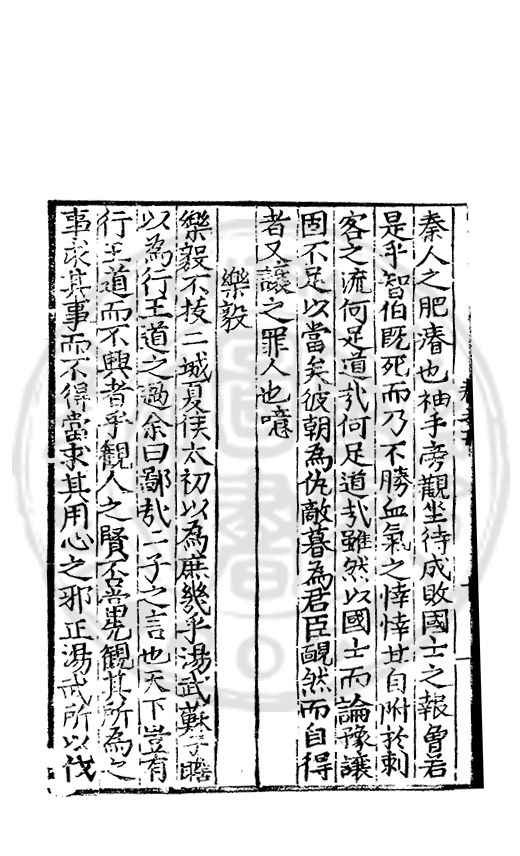 秦人之肥瘠也袖手旁觀坐待成敗國士之報曾若
是乎智伯既死而乃不勝血氣之悻悻甘自附於刺
客之流何足道哉何足道哉雖然以國士而論豫讓
固不足以當矣彼朝為仇敵暮為君臣靦然而自得
者又讓之罪人也噫
樂毅
樂毅不拔二城夏侯太初以為庶幾乎湯武蘇子瞻
以為行王道之過余曰鄙哉二子之言也天下豈有
行王道而不興者乎觀人之賢否當先觀其所為之
事求其事而不得當求其用心之邪正湯武所以伐